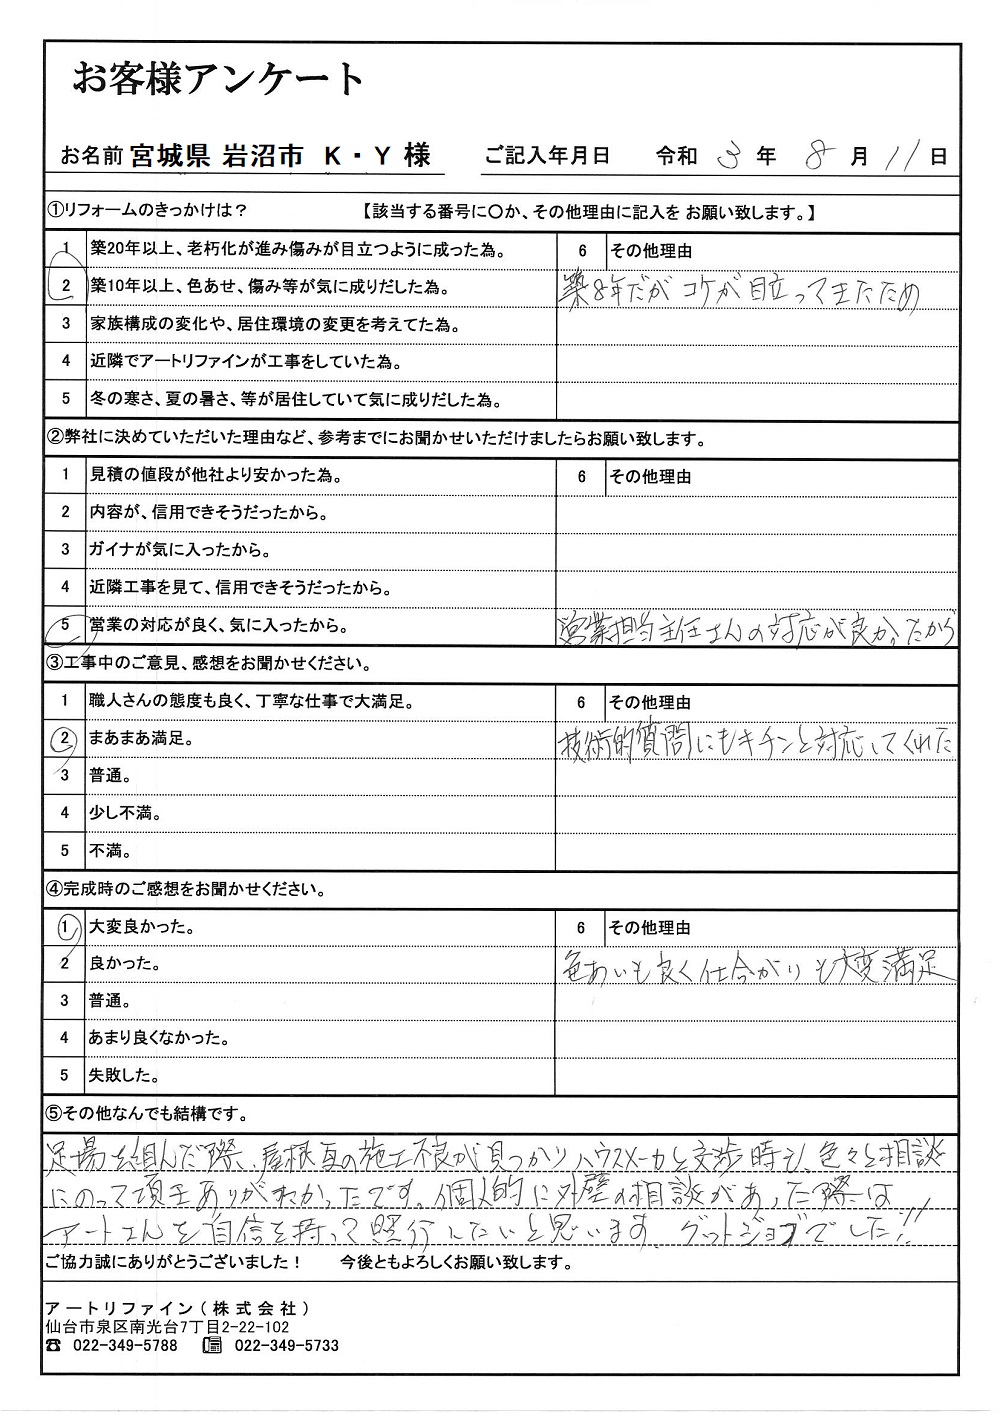 お客様アンケート
お名前 宮城県 岩沼市 K・Y 様 ご記入年月日 令和 3 年 8 月 11 日
①リフォームのきっかけは? 【該当する番号に〇か、その他理由に記入を お願い致します。】
1 築20年以上、老朽化が進み傷みが目立つように成った為。 6 その他理由
2 築10年以上、色あせ、傷み等が気に成りだした為。 築8年だが コケが目立ってきたため
3 家族構成の変化や、居住環境の変更を考えてた為。
4 近隣でアートリファインが工事をしていた為。
5 冬の寒さ、夏の暑さ、等が居住していて気に成りだした為。
②弊社に決めていただいた理由など、参考までにお聞かせいただけましたらお願い致します。
1 見積の値段が他社より安かった為。 6 その他理由
2 内容が、信用できそうだったから。
3 ガイナが気に入ったから。
4 近隣工事を見て、信用できそうだったから。
5 営業の対応が良く、気に入ったから。 営業担当主任さんの対応が良かったから
③工事中のご意見、感想をお聞かせください。
1 職人さんの態度も良く、丁寧な仕事で大満足。 6 その他理由
2 まあまあ満足。 技術的質問にもキチンと対応してくれた
3 普通。
4 少し不満。
5 不満。
④完成時のご感想をお聞かせください。
1 大変良かった。 6 その他理由
2 良かった。 色あいも良く仕合がりも大変満足
3 普通。
4 あまり良くなかった。
5 失敗した。
⑤その他なんでも結構です。
足場を組んだ際、屋根裏の施工不良が見つかりハウスメーカと交渉時も、色々と相談
にのって頂きありがたかったです。個人的に外壁の相談があった際は
アートさんを自信を持って紹介したいと思います。グットジョブでした!!
ご協力誠にありがとうございました! 今後ともよろしくお願い致します。
アートリファイン(株式会社)
仙台市泉区南光台7丁目2-22-102
☎ 022-349-5788 022-349-5733